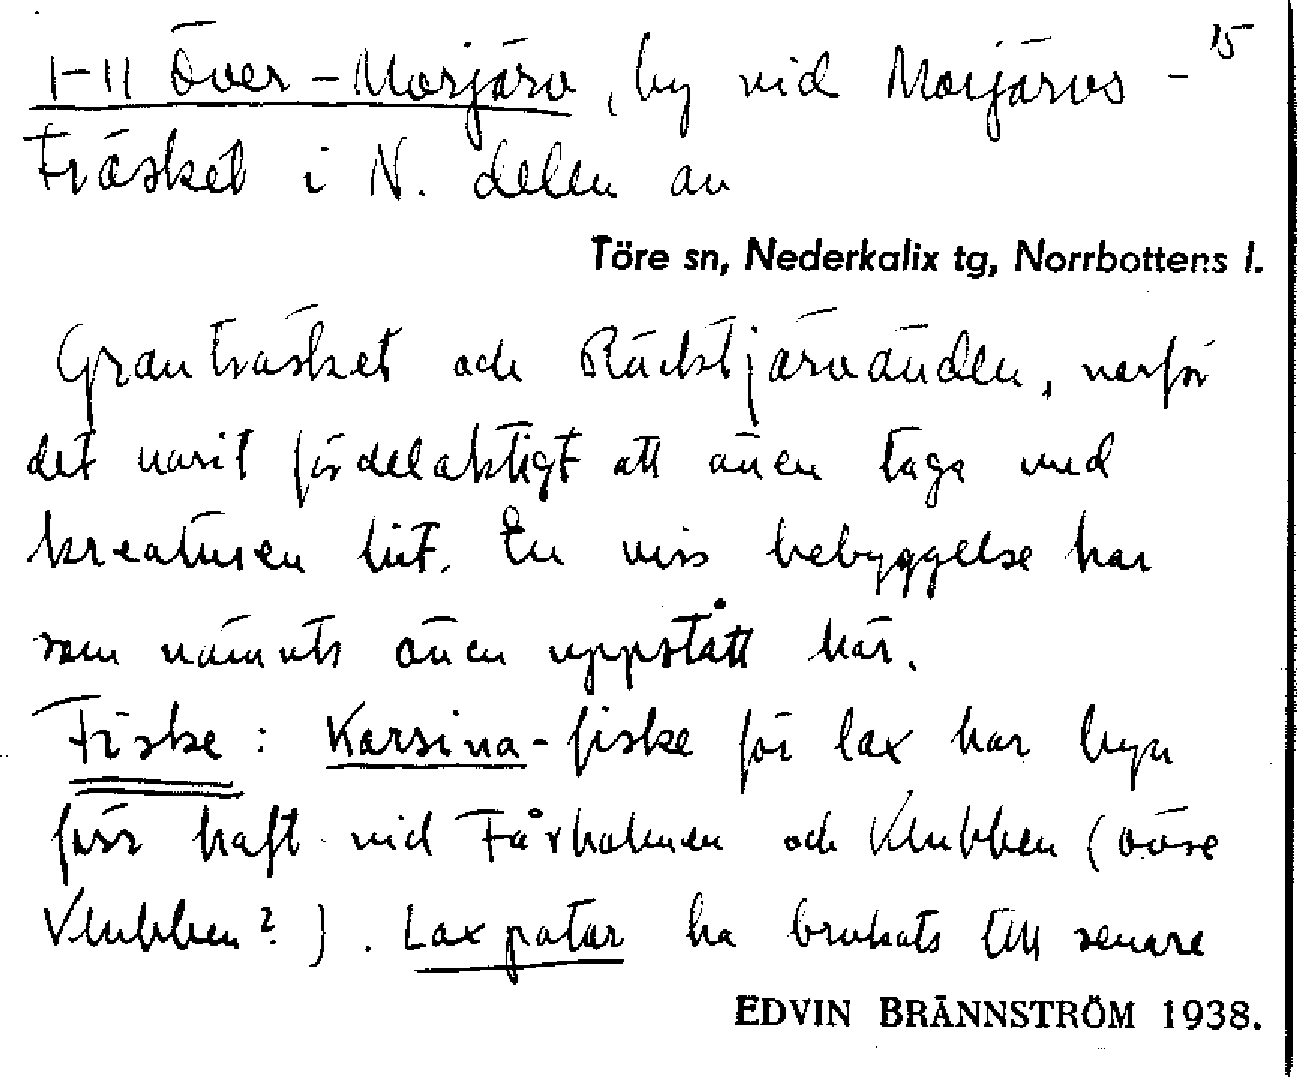 15
1-11 Över-Morjärv, by vid Morjärvs-
träsket i N. delen av
Töre sn, Nederkalix tg, Norrbottens l.
Granträsket och Räcktjärvänden, varför
det varit fördelaktigt att även taga med
kreaturen hit. En viss bebyggelse har
som nämnts även uppstått här.
Fiske: Karsina-fiske för lax har byn
förr haft vid Fårholmen och Klubben (övre
Klubben?). Laxpator ha brukats till senare
EDVIN BRÄNNSTRÖM 1938.